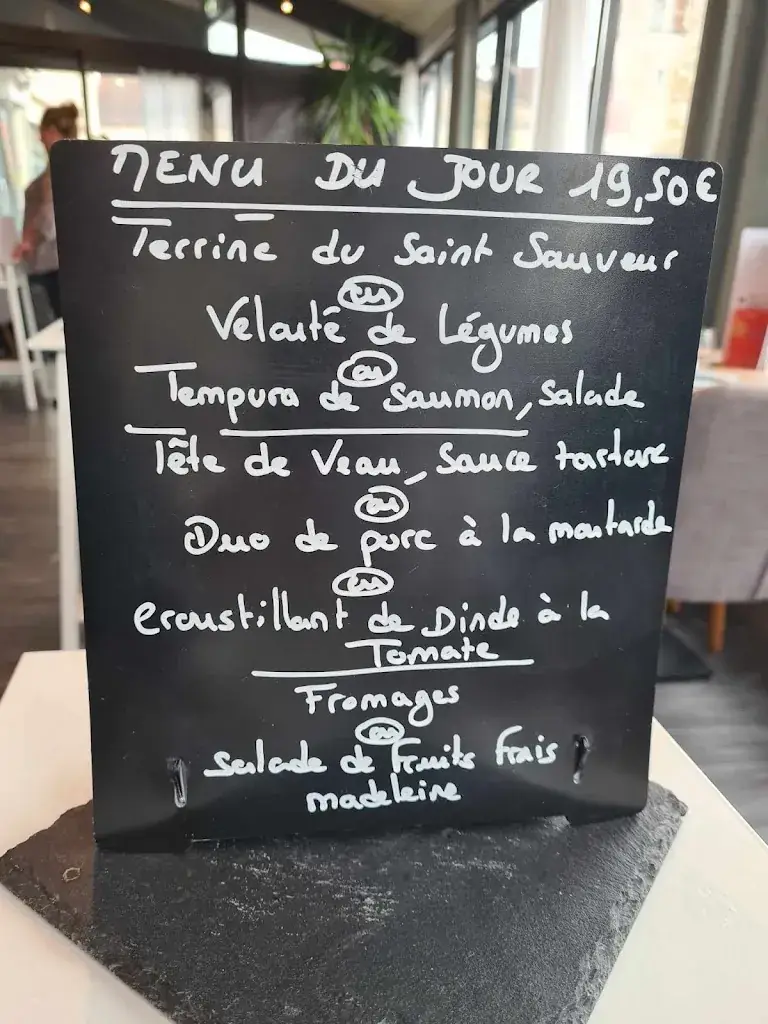 MENU DU JOUR 19,50€
Terrine du Saint Sauveur
ou
Velouté de Légumes
ou
Tempura de Saumon, Salade
Tête de Veau, Sauce tartare
ou
Duo de porc à la moutarde
ou
Croustillant de Dinde à la
Tomate
Fromages
ou
Salade de Fruits frais
madeleine